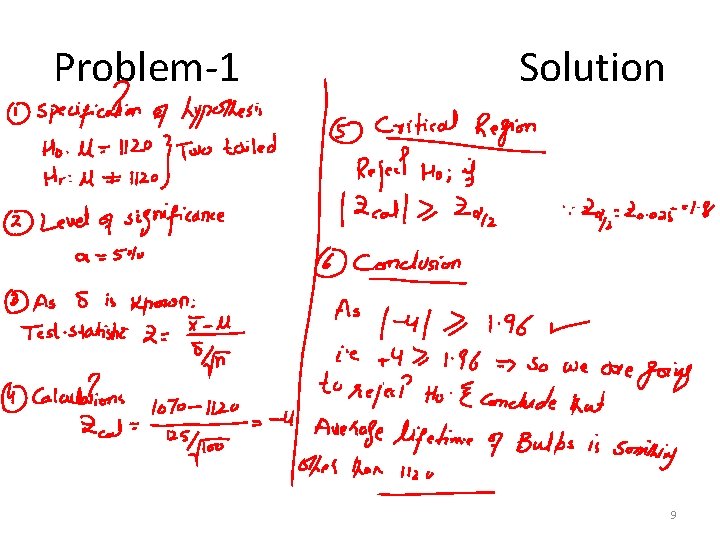 Problem-1
① Specification of hypothesis
H₀: μ = 1120 } Two tailed
H₁: μ ≠ 1120
② Level of significance
α = 5%
③ As σ is known:
Test-statistic Z = x̄ - μ / σ/√n
④ Calculations
Zcal = 1070 - 1120 / 125/√100 = -4
Solution
⑤ Critical Region
Reject H₀; if
|Zcal| ≥ Zα/2 ∵ Zα/2 = Z0.025 = 1.9
⑥ Conclusion
As |-4| ≥ 1.96 ✓
i.e +4 ≥ 1.96 ⇒ so we are going
to reject H₀ & conclude that
Average lifetime of Bulbs is something
other than 1120
9